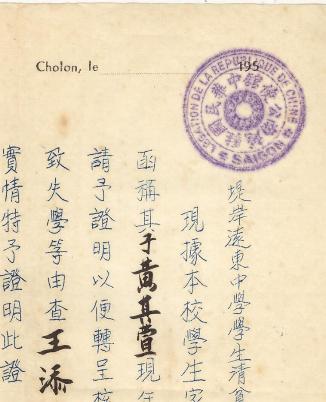 Cholon, le 195
LEGATION DE LA REPUBLIQUE DE CHINE
SAIGON
堤岸遠東中學學生清
現據本校學生家
函稱其子黃其萱現年
請予證明以便轉呈核
致失學等由查王添
實情特予證明此證